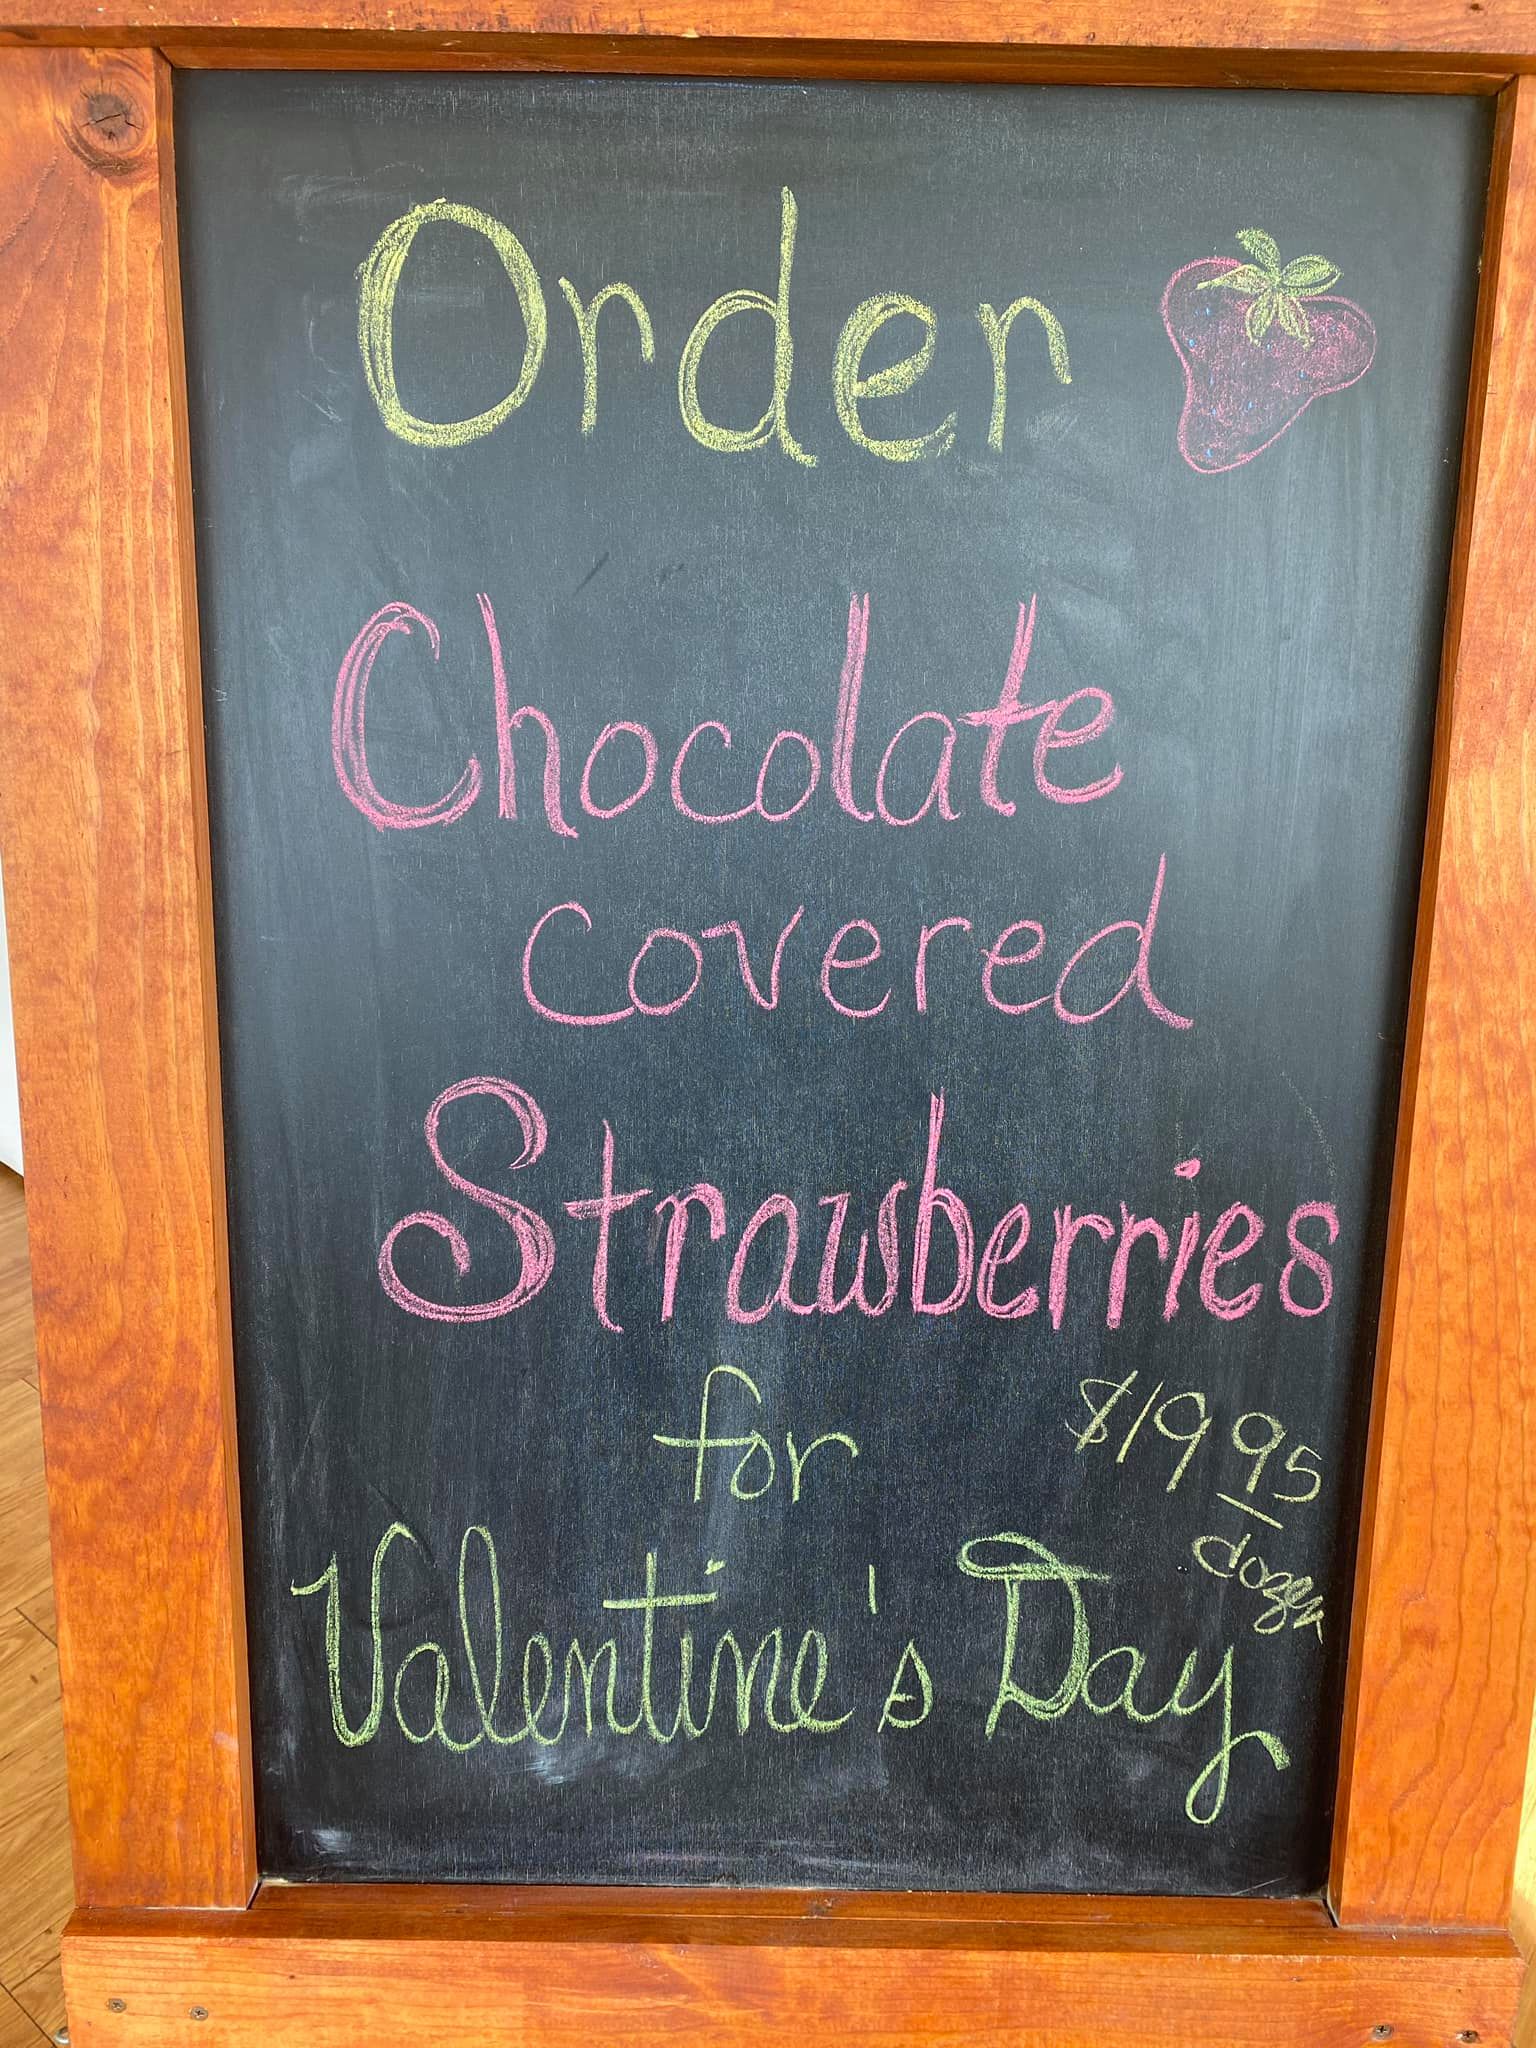 Order
Chocolate
covered
Strawberries
for
$19.95
dozen
Valentine's Day